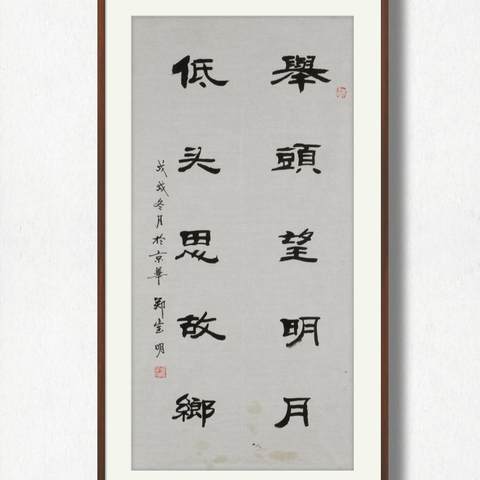 舉頭望明月
低头思故鄉
戊戌冬月於京華 鄭宝明